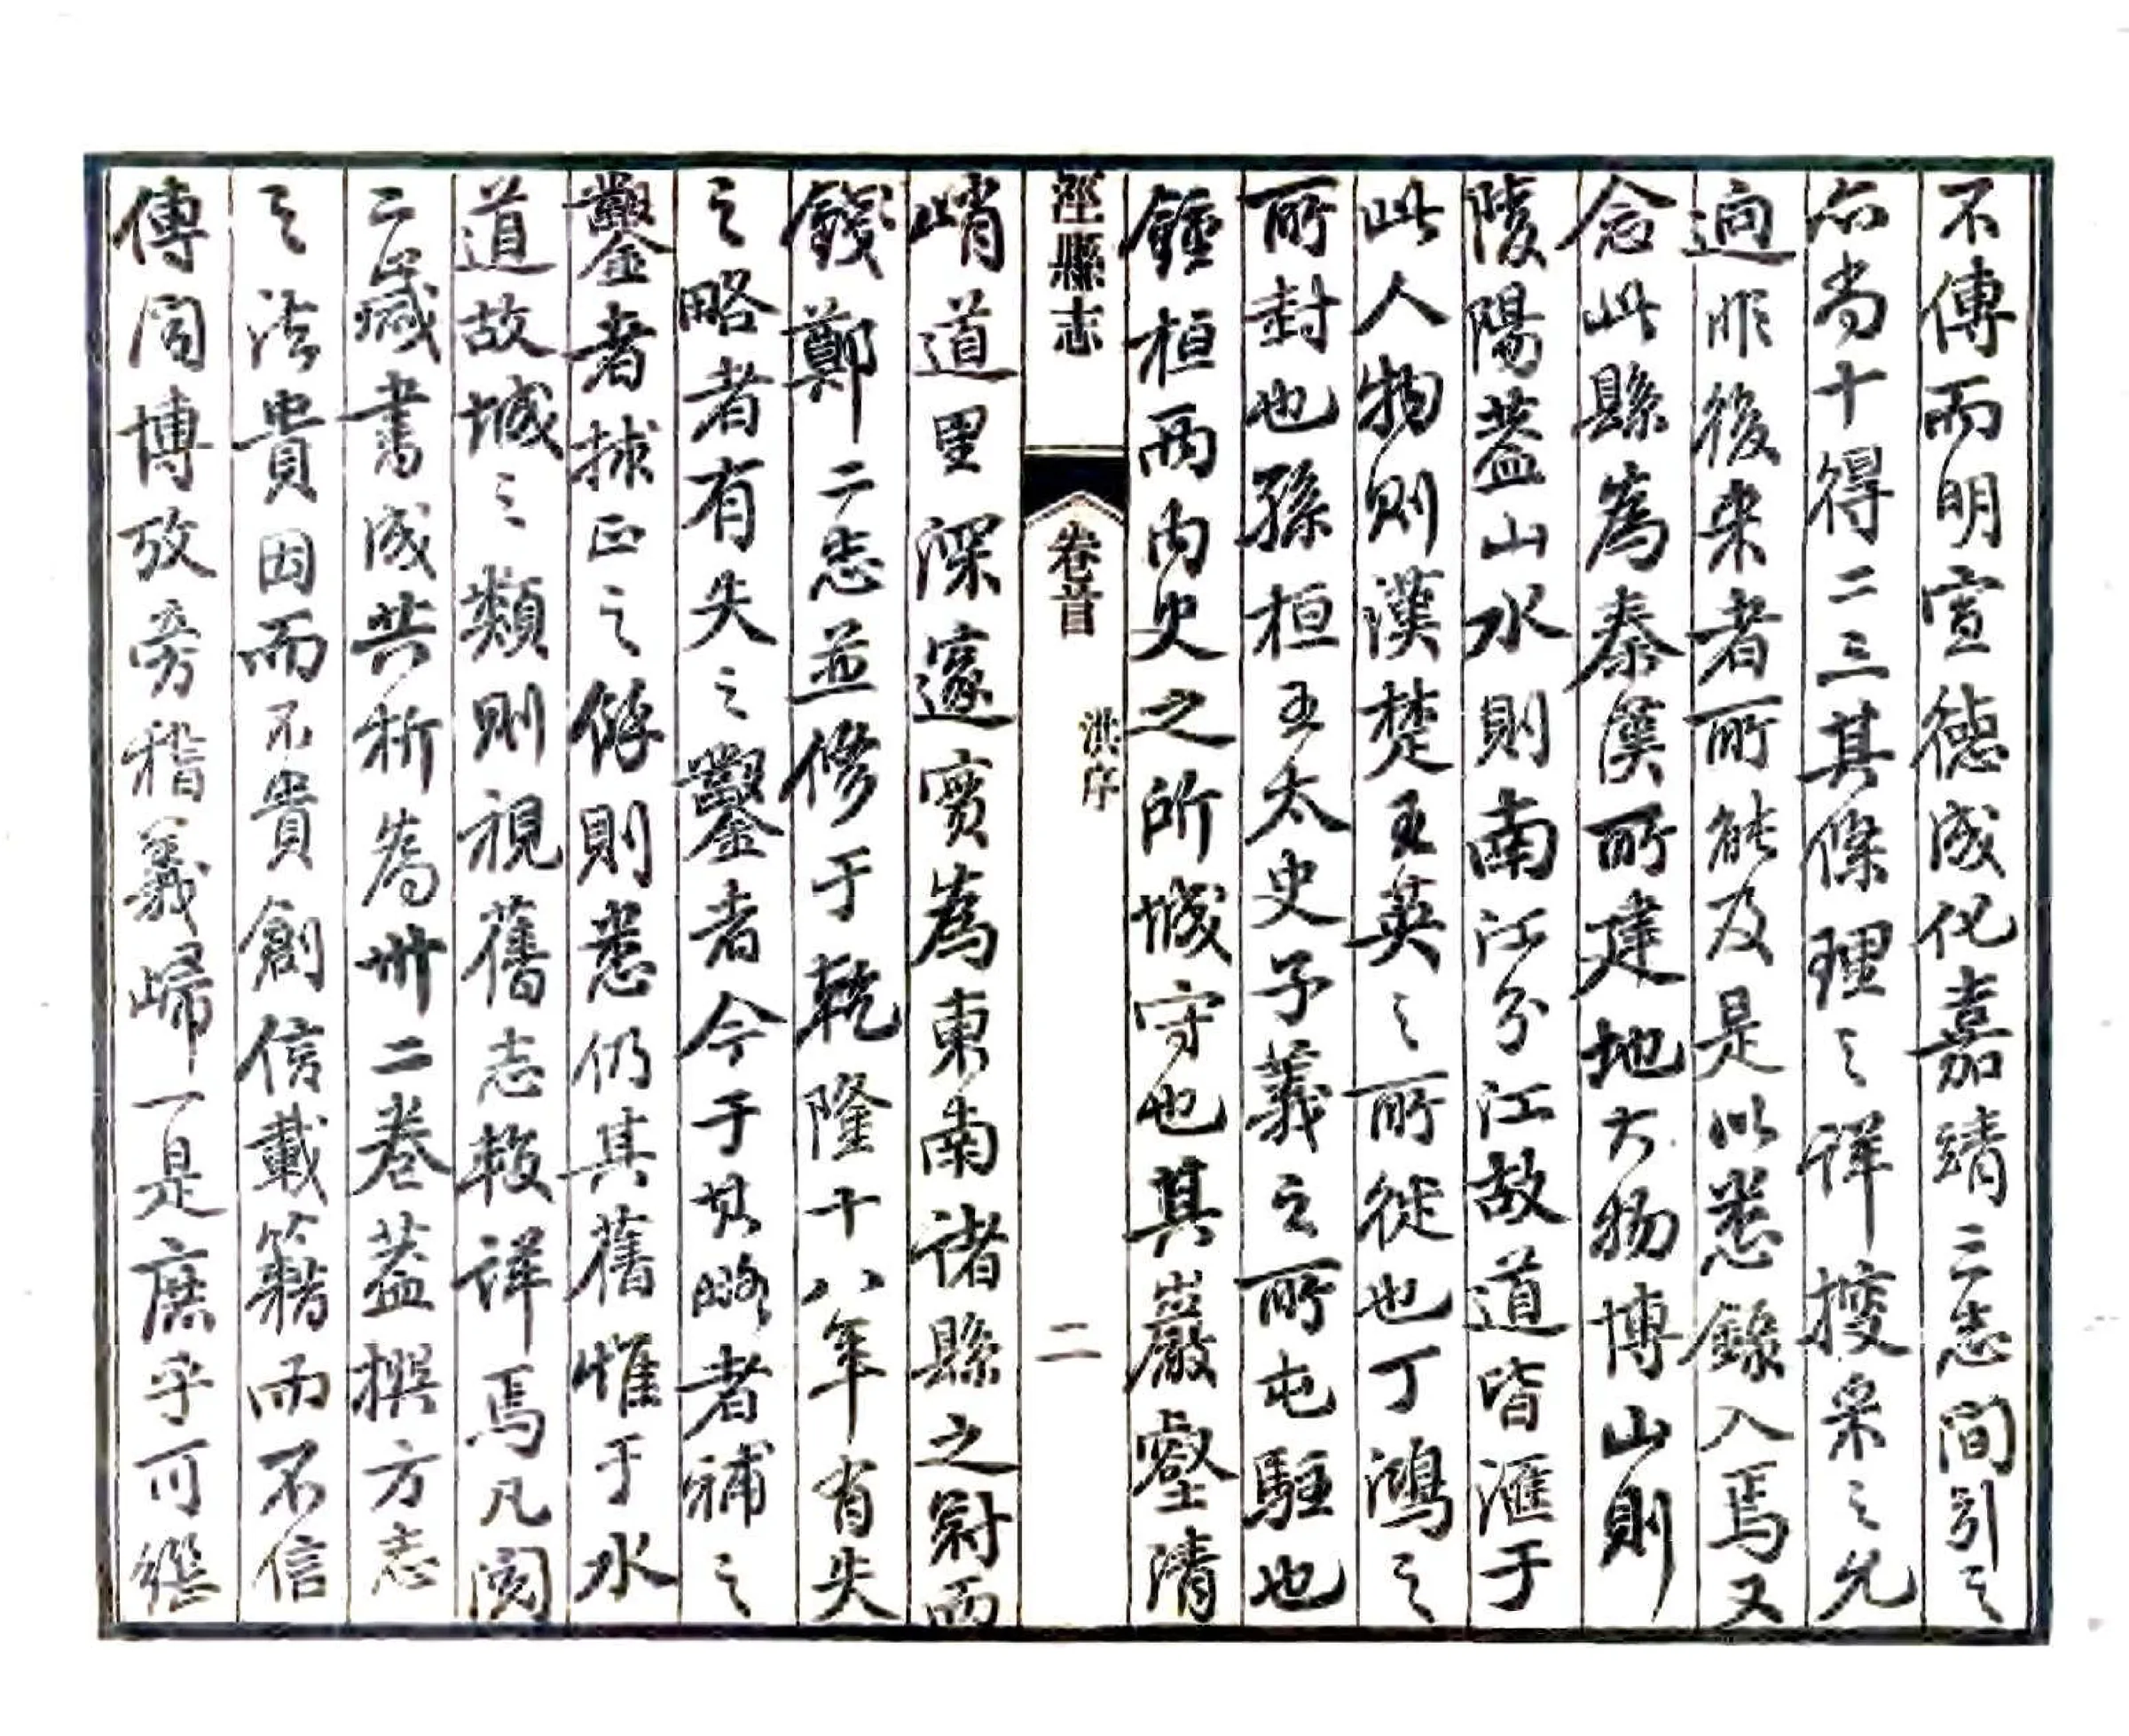 不傳而明宣德成化嘉靖三志間引之
亦尚十得二三其條理之詳搜采之允
迥非後来者所能及是以悉錄入焉又
念此縣為秦漢所建地大物博山則
陵陽蓋山水則南江分江故道皆滙于
此人物則漢楚王英之所徙也丁鴻之
所封也孫桓王太史子義之所屯駐也
鍾桓兩内史之所城守也其巖壑清
涇縣志
卷首
洪序
二
峭道里深邃實為東南諸縣之冠而
錢鄭二志並修于乾隆十八年有失
之略者有失之鑿者今于其略者補之
鑿者捄正之餘則悉仍其舊惟于水
道故城之類則視舊志較詳焉凡閱
二歲書成共析為卅二卷蓋撰方志
之法貴因而不貴創信載籍而不信
傳聞博攷旁稽義歸一是庶乎可繼